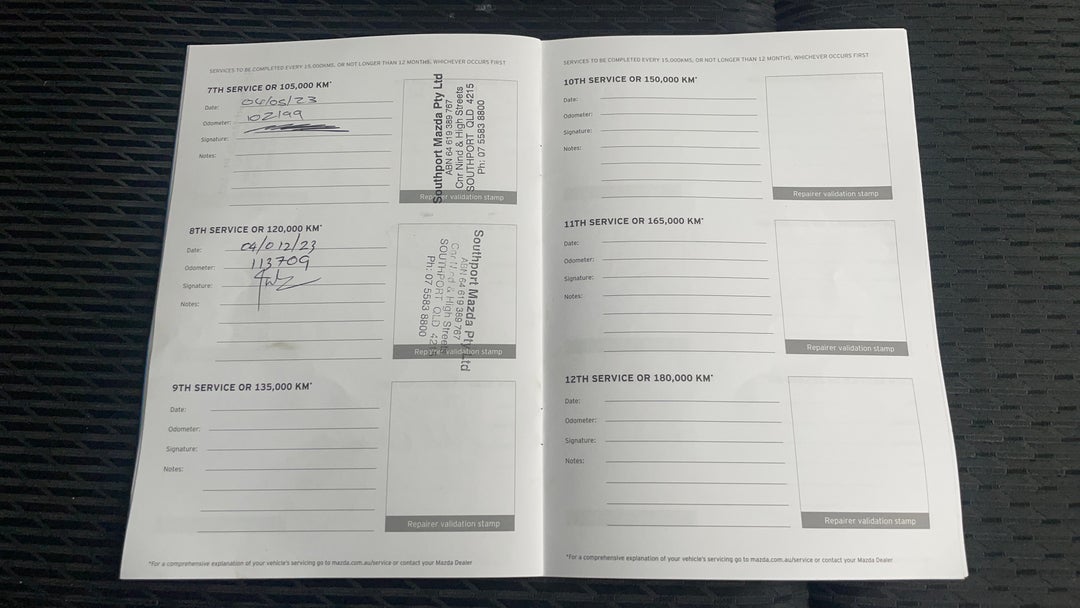 SERVICES TO BE COMPLETED EVERY 15,000KMS, OR NOT LONGER THAN 12 MONTHS, WHICHEVER OCCURS FIRST
7TH SERVICE OR 105,000 KM*
Date: 04/05/23
Odometer: 102199
Signature:
Notes:
Southport Mazda Pty Ltd
ABN 64 619 389 767
Cnr Nind & High Streets
SOUTHPORT QLD 4215
Ph: 07 5583 8800
Repairer validation stamp
8TH SERVICE OR 120,000 KM*
Date: 04/012/23
Odometer: 113709
Signature:
Notes:
Southport Mazda Pty Ltd
ABN 64 619 389 767
Cnr Nind & High Streets
SOUTHPORT QLD 42
Ph: 07 5583 8800
Repairer validation stamp
9TH SERVICE OR 135,000 KM*
Date:
Odometer:
Signature:
Notes:
Repairer validation stamp
*For a comprehensive explanation of your vehicle's servicing go to mazda.com.au/service or contact your Mazda Dealer
SERVICES TO BE COMPLETED EVERY 15,000KMS, OR NOT LONGER THAN 12 MONTHS, WHICHEVER OCCURS FIRST
10TH SERVICE OR 150,000 KM*
Date:
Odometer:
Signature:
Notes:
Repairer validation stamp
11TH SERVICE OR 165,000 KM*
Date:
Odometer:
Signature:
Notes:
Repairer validation stamp
12TH SERVICE OR 180,000 KM*
Date:
Odometer:
Signature:
Notes:
Repairer validation stamp
*For a comprehensive explanation of your vehicle's servicing go to mazda.com.au/service or contact your Mazda Dealer